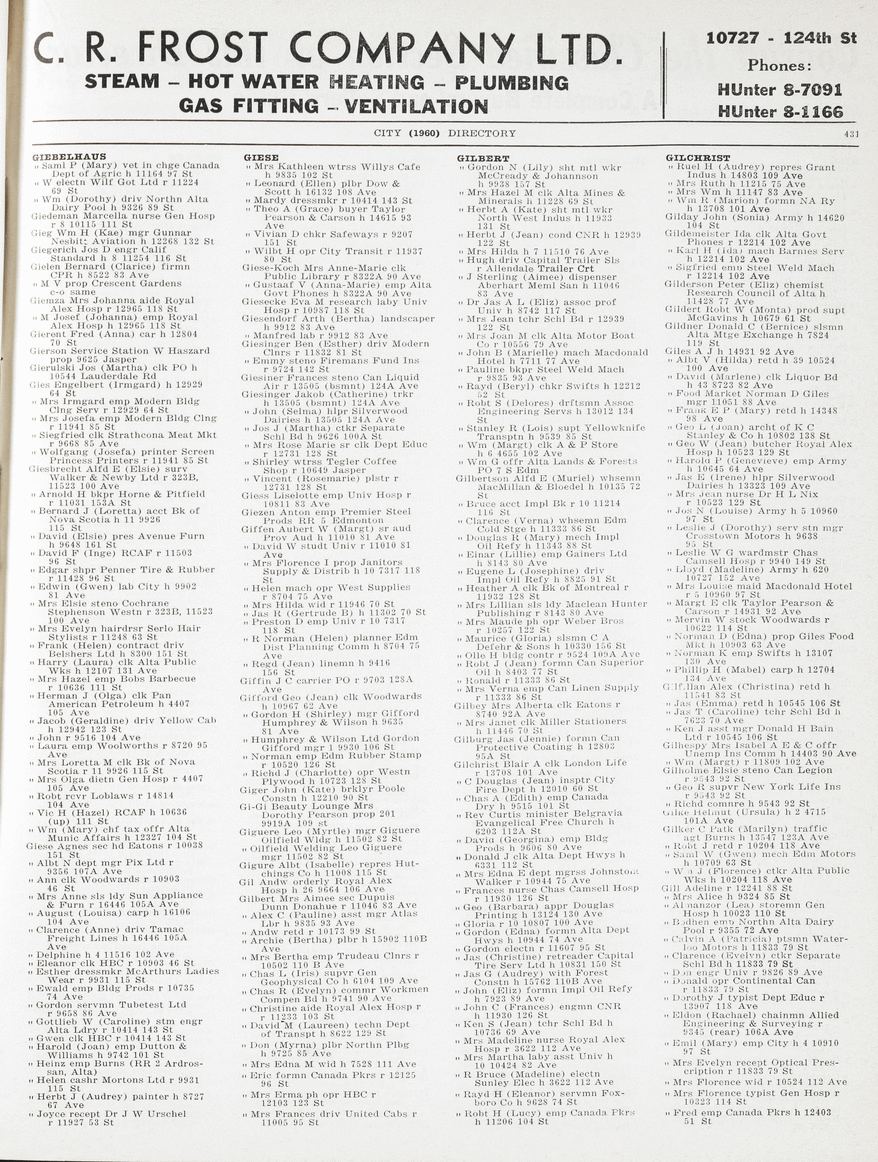 C. R. FROST COMPANY LTD.
STEAM – HOT WATER HEATING – PLUMBING
GAS FITTING – VENTILATION
10727 - 124th St
Phones:
HUnter 8-7091
HUnter 8-1166
CITY (1960) DIRECTORY
431
GIEBELHAUS
" Saml P (Mary) vet in chge Canada
Dept of Agric h 11164 97 St
" W electn Wilf Got Ltd r 11224
69 St
" Wm (Dorothy) driv Northn Alta
Dairy Pool h 9326 89 St
Giedeman Marcella nurse Gen Hosp
r 8 10115 111 St
Gieg Wm H (Kae) mgr Gunnar
Nesbitt Aviation h 12268 132 St
Giegerich Jos D engr Calif
Standard h 8 11254 116 St
Gielen Bernard (Clarice) firmn
CPR h 8522 83 Ave
" M V prop Crescent Gardens
c-o same
Giemza Mrs Johanna aide Royal
Alex Hosp r 12965 118 St
" M Josef (Johanna) emp Royal
Alex Hosp h 12965 118 St
Gierent Fred (Anna) car h 12804
70 St
Gierson Service Station W Haszard
prop 9625 Jasper
Gierulski Jos (Martha) clk PO h
10544 Lauderdale Rd
Gies Engelbert (Irmgard) h 12929
64 St
" Mrs Irmgard emp Modern Bldg
Clng Serv r 12929 64 St
" Mrs Josefa emp Modern Bldg Clng
r 11941 85 St
" Siegfried clk Strathcona Meat Mkt
r 9668 85 Ave
" Wolfgang (Josefa) printer Screen
Princess Printers r 11941 85 St
Giesbrecht Alfd E (Elsie) surv
Walker & Newby Ltd r 323B,
11523 100 Ave
" Arnold H bkpr Horne & Pitfield
r 11031 153A St
" Bernard J (Loretta) acct Bk of
Nova Scotia h 11 9926
115 St
" David (Elsie) pres Avenue Furn
h 9648 161 St
" David F (Inge) RCAF r 11503
96 St
" Edgar shpr Penner Tire & Rubber
r 11428 96 St
" Edwin (Gwen) lab City h 9902
81 Ave
" Mrs Elsie steno Cochrane
Stephenson Westn r 323B, 11523
100 Ave
" Mrs Evelyn hairdrsr Serlo Hair
Stylists r 11248 63 St
" Frank (Helen) contract driv
Belshers Ltd h 8300 151 St
" Harry (Laura) clk Alta Public
Wks h 12107 131 Ave
" Mrs Hazel emp Bobs Barbecue
r 10636 111 St
" Herman J (Olga) clk Pan
American Petroleum h 4407
105 Ave
" Jacob (Geraldine) driv Yellow Cab
h 12942 123 St
" John r 9516 104 Ave
" Laura emp Woolworths r 8720 95
Ave
" Mrs Loretta M clk Bk of Nova
Scotia r 11 9926 115 St
" Mrs Olga dietn Gen Hosp r 4407
105 Ave
" Robt rcvr Loblaws r 14814
104 Ave
" Vic H (Hazel) RCAF h 10636
(up) 111 St
" Wm (Mary) chf tax offr Alta
Munic Affairs h 12327 104 St
Giese Agnes sec hd Eatons r 10038
151 St
" Albt N dept mgr Pix Ltd r
9356 107A Ave
" Ann clk Woodwards r 10903
46 St
" Mrs Anne sls ldy Sun Appliance
& Furn r 16446 105A Ave
" August (Louisa) carp h 16106
104 Ave
" Clarence (Anne) driv Tamac
Freight Lines h 16446 105A
Ave
" Delphine h 4 11516 102 Ave
" Eleanor clk HBC r 10903 46 St
" Esther dressmkr McArthurs Ladies
Wear r 9931 115 St
" Ewald emp Bldg Prods r 10735
74 Ave
" Gordon servmn Tubetest Ltd
r 9658 86 Ave
" Gottlieb W (Caroline) stm engr
Alta Ldry r 10414 143 St
" Gwen clk HBC r 10414 143 St
" Harold (Joan) emp Dutton &
Williams h 9742 101 St
" Heinz emp Burns (RR 2 Ardros-
san, Alta)
" Helen cashr Mortons Ltd r 9931
115 St
" Herbt J (Audrey) painter h 8727
67 Ave
" Joyce recept Dr J W Urschel
r 11927 53 St
GIESE
" Mrs Kathleen wtrss Willys Cafe
h 9835 102 St
" Leonard (Ellen) plbr Dow &
Scott h 16132 108 Ave
" Mardy dressmkr r 10414 143 St
" Theo A (Grace) buyer Taylor
Pearson & Carson h 14615 93
Ave
" Vivian D chkr Safeways r 9207
151 St
" Wilbt H opr City Transit r 11937
80 St
Giese-Koch Mrs Anne-Marie clk
Public Library r 8322A 90 Ave
" Gustaaf V (Anna-Marie) emp Alta
Govt Phones h 8322A 90 Ave
Giesecke Eva M research laby Univ
Hosp r 10987 118 St
Giesendorf Arth (Bertha) landscaper
h 9912 83 Ave
" Manfred lab r 9912 83 Ave
Giesinger Ben (Esther) driv Modern
Clnrs r 11832 81 St
" Emmy steno Firemans Fund Ins
r 9724 142 St
Giesiner Frances steno Can Liquid
Air r 13505 (bsmnt) 124A Ave
Giesinger Jakob (Catherine) trkr
h 13505 (bsmnt) 124A Ave
" John (Selma) hlpr Silverwood
Dairies h 13505 124A Ave
" Jos J (Martha) ctkr Separate
Schl Bd h 9626 100A St
" Mrs Rose Marie sr clk Dept Educ
r 12731 128 St
" Shirley wtrss Tegler Coffee
Shop r 10649 Jasper
" Vincent (Rosemarie) plstr r
12731 128 St
Giess Liselotte emp Univ Hosp r
10811 83 Ave
Giezen Anton emp Premier Steel
Prods RR 5 Edmonton
Giffen Aubert W (Margt) sr aud
Prov Aud h 11010 81 Ave
" David W studt Univ r 11010 81
Ave
" Mrs Florence I prop Janitors
Supply & Distrib h 10 7317 118
St
" Helen mach opr West Supplies
r 8704 75 Ave
" Mrs Hilda wid r 11946 70 St
" Jas R (Gertrude B) h 11302 70 St
" Preston D emp Univ r 10 7317
118 St
" R Norman (Helen) planner Edm
Dist Planning Comm h 8704 75
Ave
" Regd (Jean) linemn h 9416
156 St
Giffin J C carrier PO r 9703 128A
Ave
Gifford Geo (Jean) clk Woodwards
h 10967 62 Ave
" Gordon H (Shirley) mgr Gifford
Humphrey & Wilson h 9635
81 Ave
" Humphrey & Wilson Ltd Gordon
Gifford mgr 1 9930 106 St
" Norman emp Edm Rubber Stamp
r 10520 126 St
" Richd J (Charlotte) opr Westn
Plywood h 10723 128 St
Giger John (Kate) brklyr Poole
Constn h 12210 90 St
Gi-Gi Beauty Lounge Mrs
Dorothy Pearson prop 201
9919A 109 st
Giguere Leo (Myrtle) mgr Giguere
Oilfield Wldg h 11502 82 St
" Oilfield Welding Leo Giguere
mgr 11502 82 St
Gigure Albt (Isabelle) repres Hut-
chings Co h 11008 115 St
Gil Andw orderly Royal Alex
Hosp h 26 9664 106 Ave
Gilbert Mrs Aimee sec Dupuis
Dunn Donahue r 11046 83 Ave
" Alex C (Pauline) asst mgr Atlas
Lbr h 9835 93 Ave
" Andw retd r 10173 99 St
" Archie (Bertha) plbr h 15902 110B
Ave
" Mrs Bertha emp Trudeau Clnrs r
10502 110 B Ave
" Chas L (Iris) supvr Gen
Geophysical Co h 6104 109 Ave
" Chas R (Evelyn) commr Workmen
Compen Bd h 9741 90 Ave
" Christine aide Royal Alex Hosp r
r 11233 103 St
" David M (Laureen) techn Dept
of Transpt h 8622 129 St
" Don (Myrna) plbr Northn Plbg
h 9725 85 Ave
" Mrs Edna M wid h 7528 111 Ave
" Eric formn Canada Pkrs r 12125
96 St
" Mrs Erma ph opr HBC r
12103 123 St
" Mrs Frances driv United Cabs r
11005 95 St
GILBERT
" Gordon N (Lily) sht mtl wkr
McCready & Johannson
h 9938 157 St
" Mrs Hazel M clk Alta Mines &
Minerals h 11228 69 St
" Herbt A (Kate) sht mtl wkr
North West Indus h 11933
131 St
" Herbt J (Jean) cond CNR h 12939
122 St
" Mrs Hilda h 7 11510 76 Ave
" Hugh driv Capital Trailer Sls
r Allendale Trailer Crt
" J Sterling (Aimee) dispenser
Aberhart Meml San h 11046
83 Ave
" Dr Jas A L (Eliz) assoc prof
Univ h 8742 117 St
" Mrs Jean tchr Schl Bd r 12939
122 St
" Mrs Joan M clk Alta Motor Boat
Co r 10556 79 Ave
" John B (Marielle) mach Macdonald
Hotel h 7711 77 Ave
" Pauline bkpr Steel Weld Mach
r 9835 93 Ave
" Rayd (Beryl) chkr Swifts h 12212
52 St
" Robt S (Delores) drftsmn Assoc
Engineering Servs h 13012 134
St
" Stanley R (Lois) supt Yellowknife
Transptn h 9539 85 St
" Wm (Margt) clk A & P Store
h 6 4655 102 Ave
" Wm G offr Alta Lands & Forests
PO 7 S Edm
Gilbertson Alfd E (Muriel) whsemn
MacMillan & Bloedel h 10135 72
St
" Bruce acct Impl Bk r 10 11214
116 St
" Clarence (Verna) whsemn Edm
Cold Stge h 11333 86 St
" Douglas R (Mary) mech Impl
Oil Refy h 11343 88 St
" Einar (Lillie) emp Gainers Ltd
h 8143 80 Ave
" Eugene L (Josephine) driv
Impl Oil Refy h 8825 91 St
" Heather A clk Bk of Montreal r
11932 128 St
" Mrs Lillian sls ldy Maclean Hunter
Publishing r 8143 80 Ave
" Mrs Maude ph opr Weber Bros
r 10257 122 St
" Maurice (Gloria) slsmn C A
Defehr & Sons h 10330 156 St
" Olle H bldg contr r 9524 109A Ave
" Robt J (Jean) formn Can Superior
Oil h 8403 77 St
" Ronald r 11333 86 St
" Mrs Verna emp Can Linen Supply
r 11333 86 St
Gilbey Mrs Alberta clk Eatons r
8740 92A Ave
" Mrs Janet clk Miller Stationers
h 11446 70 St
Gilburg Jas (Jennie) formn Can
Protective Coating h 12803
95A St
Gilchrist Blair A clk London Life
r 13708 101 Ave
" C Douglas (Jean) insptr City
Fire Dept h 12010 60 St
" Chas A (Edith) emp Canada
Dry h 9515 101 St
" Rev Curtis minister Belgravia
Evangelical Free Church h
6203 112A St
" David (Georgina) emp Bldg
Prods h 9606 80 Ave
" Donald J clk Alta Dept Hwys h
6331 112 St
" Mrs Edna E dept mgrss Johnstone
Walker r 10944 75 Ave
" Frances nurse Chas Camsell Hosp
r 11930 126 St
" Geo (Barbara) appr Douglas
Printing h 13124 130 Ave
" Gloria r 10 10807 100 Ave
" Gordon (Edna) formn Alta Dept
Hwys h 10944 74 Ave
" Gordon electn r 11607 95 St
" Jas (Christine) retreader Capital
Tire Serv Ltd h 10831 150 St
" Jas G (Audrey) with Forest
Constn h 15762 110B Ave
" John (Eliz) formn Impl Oil Refy
h 7923 89 Ave
" John C (Frances) engmn CNR
h 11930 126 St
" Ken S (Jean) tchr Schl Bd h
10736 69 Ave
" Mrs Madeline nurse Royal Alex
Hosp r 3622 112 Ave
" Mrs Martha laby asst Univ h
10 10424 82 Ave
" R Bruce (Madeline) electn
Sunley Elec h 3622 112 Ave
" Rayd H (Eleanor) servmn Fox-
boro Co h 9628 74 St
" Robt H (Lucy) emp Canada Pkrs
h 11206 104 St
GILCHRIST
" Ruel H (Audrey) repres Grant
Indus h 14803 109 Ave
" Mrs Ruth h 11215 75 Ave
" Mrs Wm h 11147 83 Ave
" Wm R (Marion) formn NA Ry
h 13708 101 Ave
Gilday John (Sonia) Army h 14620
104 St
Gildemeister Ida clk Alta Govt
Phones r 12214 102 Ave
" Karl H (Ida) mach Barnes Serv
h 12214 102 Ave
" Sigfried emp Steel Weld Mach
r 12214 102 Ave
Gilderson Peter (Eliz) chemist
Research Council of Alta h
11428 77 Ave
Gildert Robt W (Monta) prod supt
McGavins h 10679 61 St
Gildner Donald C (Bernice) slsmn
Alta Mtge Exchange h 7824
119 St
Giles A J h 14931 92 Ave
" Albt V (Hilda) retd h 39 10524
100 Ave
" David (Marlene) clk Liquor Bd
h 43 8723 82 Ave
" Food Market Norman D Giles
mgr 11051 88 Ave
" Frank E P (Mary) retd h 14348
98 Ave
" Geo L (Joan) archt of K C
Stanley & Co h 10802 138 St
" Geo W (Jean) butcher Royal Alex
Hosp h 10523 129 St
" Harold P (Genevieve) emp Army
h 10645 64 Ave
" Jas E (Irene) hlpr Silverwood
Dairies h 13323 109 Ave
" Mrs Jean nurse Dr H L Nix
r 10523 129 St
" Jos N (Louise) Army h 5 10960
97 St
" Leslie J (Dorothy) serv stn mgr
Crosstown Motors h 9638
95 St
" Leslie W G wardmstr Chas
Camsell Hosp r 9940 149 St
" Lloyd (Madeline) Army h 620
10727 152 Ave
" Mrs Louise maid Macdonald Hotel
r 5 10960 97 St
" Margt E clk Taylor Pearson &
Carson r 14931 92 Ave
" Mervin W stock Woodwards r
10622 114 St
" Norman D (Edna) prop Giles Food
Mkt h 10903 63 Ave
" Norman K emp Swifts h 13107
130 Ave
" Phillip H (Mabel) carp h 12704
134 Ave
Gilfillan Alex (Christina) retd h
11541 83 St
" Jas (Emma) retd h 10545 106 St
" Jas T (Caroline) tchr Schl Bd h
7623 70 Ave
" Ken J asst mgr Donald H Bain
Ltd r 10545 106 St
Gilhespy Mrs Isabel A E & C offr
Unemp Ins Comm h 14403 90 Ave
" Wm (Margt) r 11809 102 Ave
Gilholme Elsie steno Can Legion
r 9543 92 St
" Geo R supvr New York Life Ins
r 9543 92 St
" Richd comnre h 9543 92 St
Gilke Helmut (Ursula) h 2 4715
101A Ave
Gilker C Patk (Marilyn) traffic
agt Burns h 13547 123A Ave
" Robt J retd r 10204 118 Ave
" Saml W (Gwen) mech Edm Motors
h 10709 63 St
" W J (Florence) ctkr Alta Public
Wks h 10204 118 Ave
Gill Adeline r 12241 88 St
" Mrs Alice h 9324 85 St
" Almanzor (Lea) storemn Gen
Hosp h 10023 110 St
" Bodhen emp Northn Alta Dairy
Pool r 9355 72 Ave
" Calvin A (Patricia) ptsmn Water-
loo Motors h 11833 79 St
" Clarence (Evelyn) ctkr Separate
Schl Bd h 11833 79 St
" Don engr Univ r 9826 89 Ave
" Donald opr Continental Can
r 11833 79 St
" Dorothy J typist Dept Educ r
13907 118 Ave
" Eldon (Rachael) chainmn Allied
Engineering & Surveying r
9345 (rear) 106A Ave
" Emil (Mary) emp City h 4 10910
97 St
" Mrs Evelyn recept Optical Pres-
cription r 11833 79 St
" Mrs Florence wid r 10524 112 Ave
" Mrs Florence typist Gen Hosp r
10323 114 St
" Fred emp Canada Pkrs h 12403
51 St